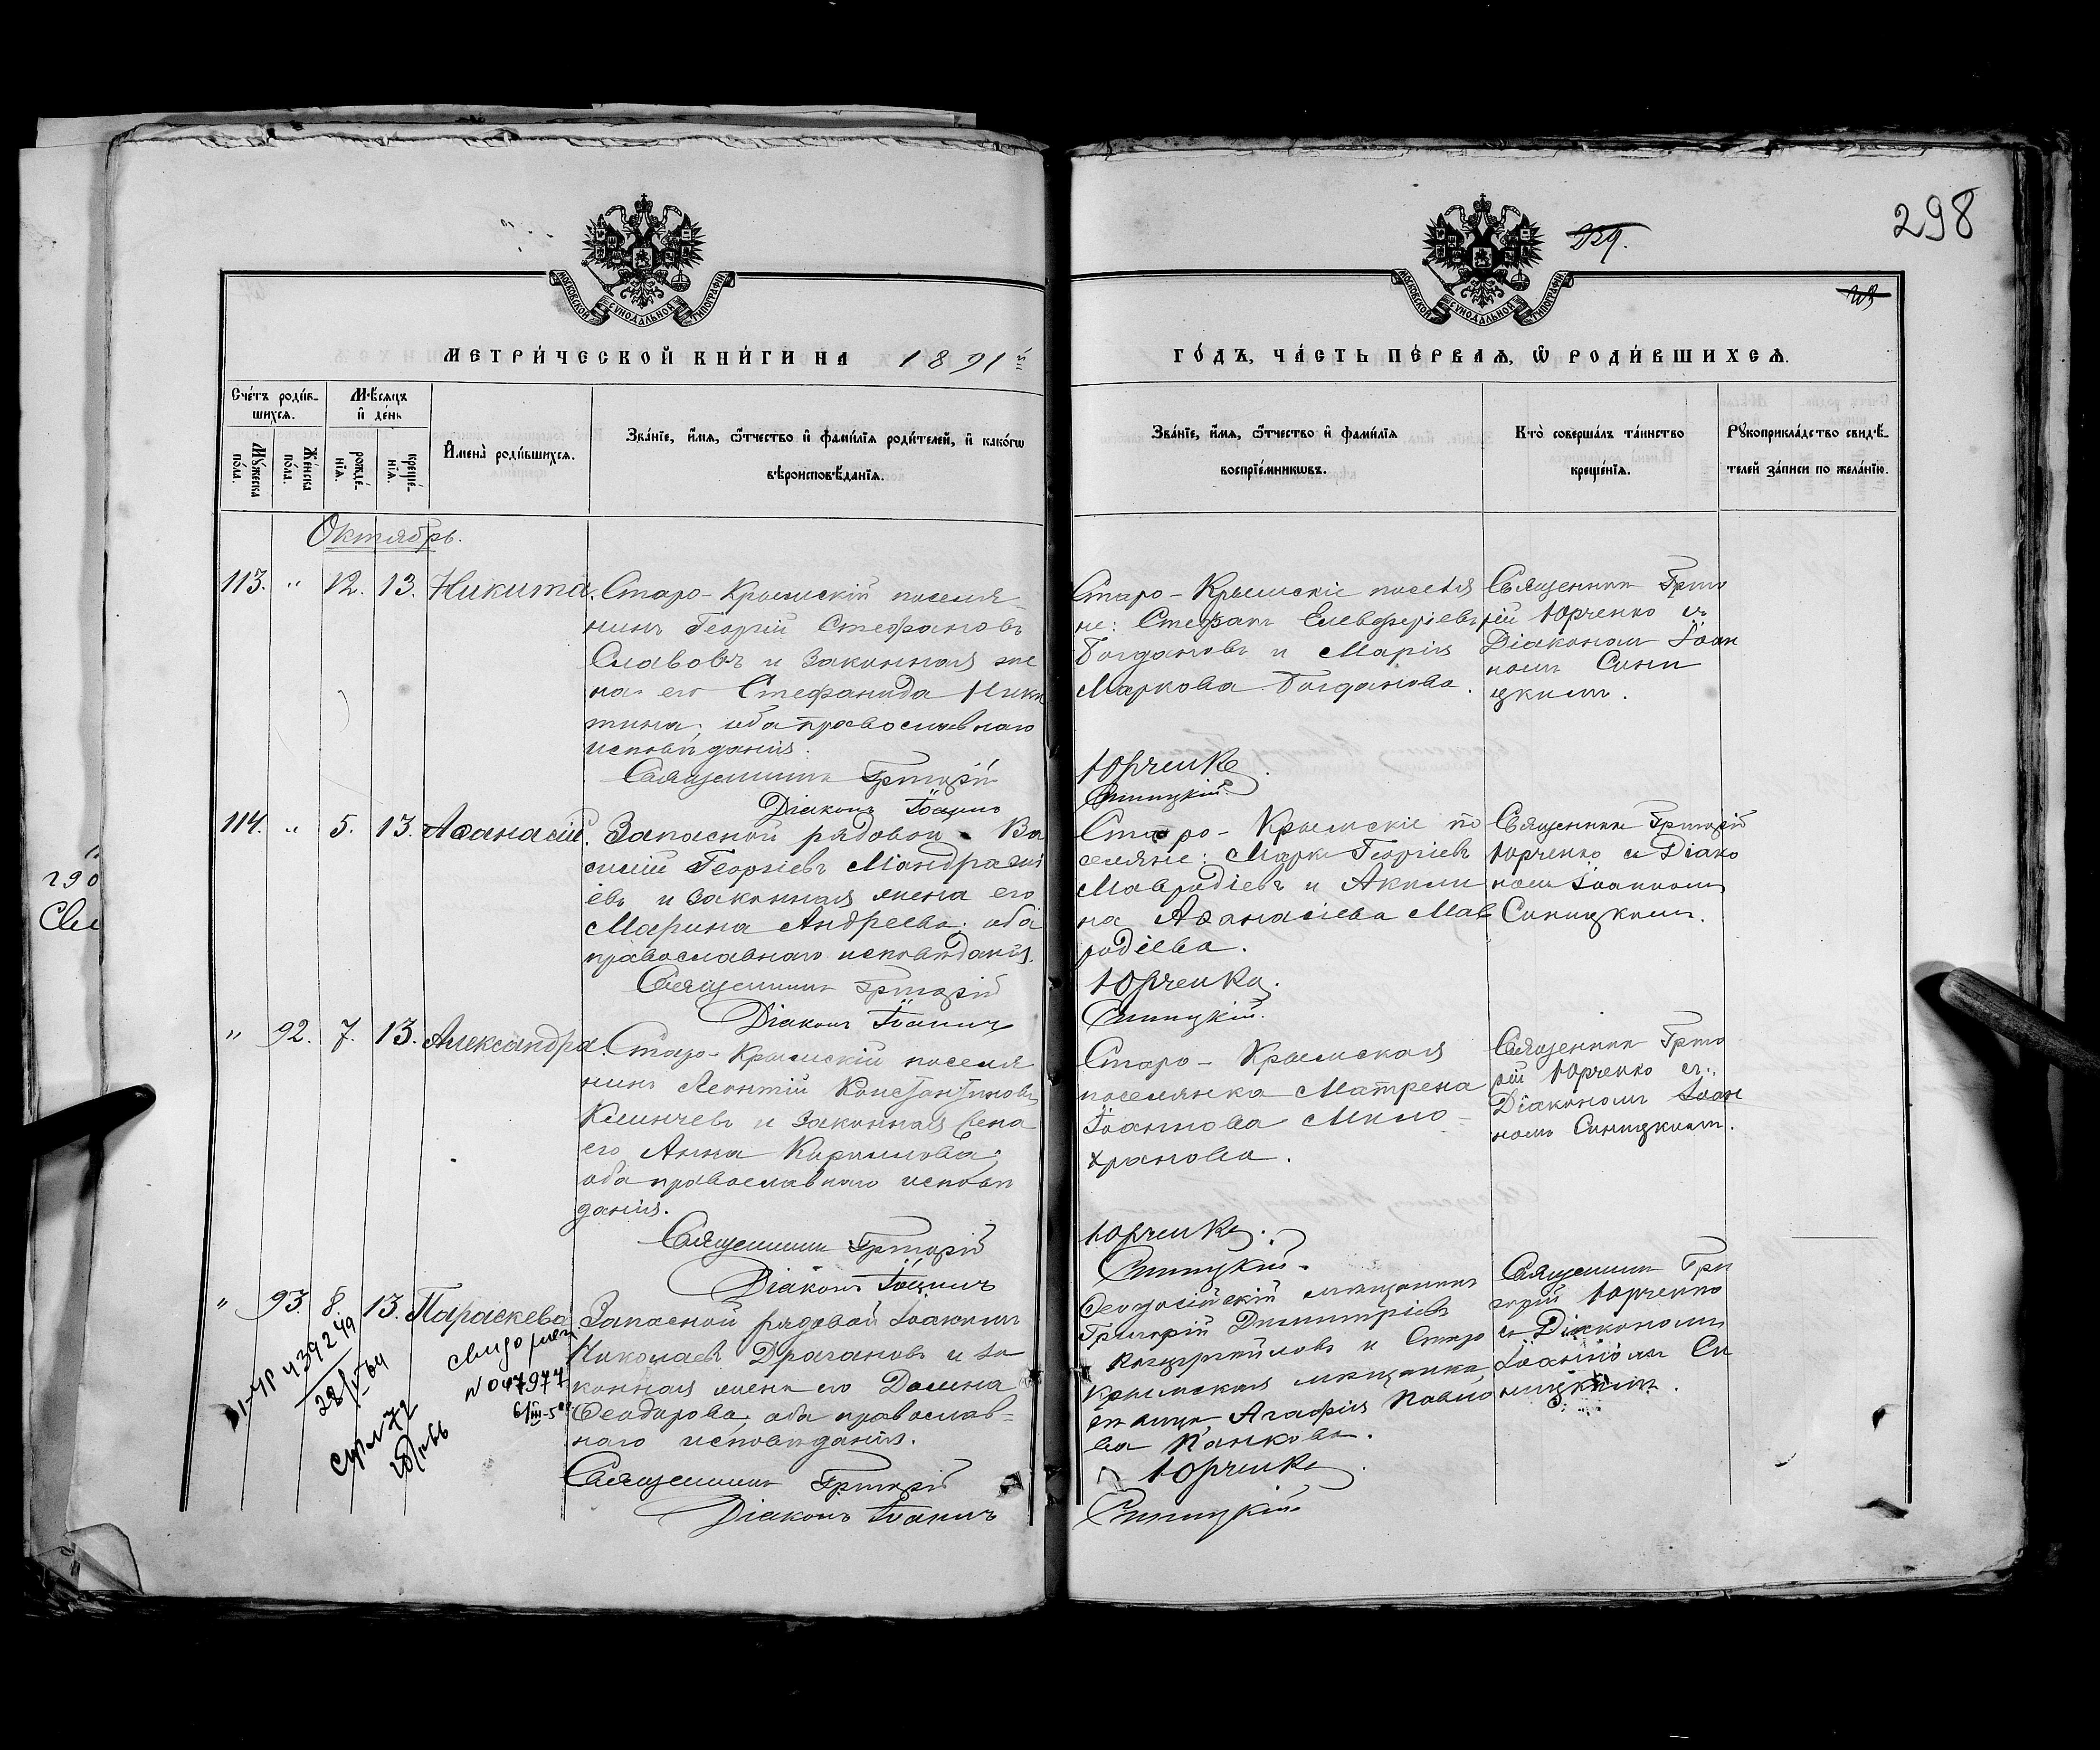 298
229.
МОСКОВСКОЙ СУНОДАЛЬНОЙ ТИПОГРАФІИ
МОСКОВСКОЙ СУНОДАЛЬНОЙ ТИПОГРАФІИ
МЕТРИ́ЧЕСКОЙ КНИ́ГИ НА 1891й
ГО́ДЪ, ЧА́СТЬ ПЕ́РВАѦ, Ѡ҆ РОДИ́ВШИХСѦ.
Сче́тъ роди́в-
шихсѧ.
Мꙋ́жеска по́ла.
Же́нска по́ла.
Мѣ́сѧцъ
и҆ де́нь
рожде́-
нїѧ.
креще́-
нїѧ.
И҆мена̀ роди́вшихсѧ.
Зва́нїе, и҆́мѧ, ѻ҆́тчество и҆ фами́лїѧ роди́телей, и҆ како́гѡ
вѣроисповѣ́данїѧ.
Зва́нїе, и҆́мѧ, ѻ҆́тчество и҆ фами́лїѧ
воспрїе́мникѡвъ.
Кто̀ соверша́лъ та́инство
креще́нїѧ.
Рꙋкоприкла́дство свидѣ́-
телей за́писи по жела́нїю.
Октябрь.
113. " 12. 13. Никита.
Старо-Крымскій поселя-
нинъ Георгій Стефановъ
Славовъ и законная же
на его Стефанида Ники
тина; оба православнаго
исповѣданія.
Священникъ Григорій
Діаконъ Іоаннъ
Старо-Крымскіе поселя
не: Стефанъ Елевферіевъ
Богдановъ и Марія
Маркова Богданова.
Юрченко.
Синицкій.
Священникъ Григо
рій Юрченко съ
Діакономъ Іоан
номъ Сини
цкимъ.
114. " 5. 13. Аѳанасій.
Запасной рядовой Ва
силій Георгіевъ Мандражі
евъ и законная жена его
Марина Андреева; оба
православнаго исповѣданія.
Священникъ Григорій
Діаконъ Іоаннъ
Старо-Крымскіе по
селяне: Маркъ Георгіевъ
Мавродіевъ и Акили
на Аѳанасіева Мав
родіева.
Юрченко.
Синицкій.
Священникъ Григорій
Юрченко съ Діако
номъ Іоанномъ
Синицкимъ.
" 92. 7. 13. Александра.
Старо-Крымскій поселя
нинъ Леонтій Константиновъ
Клинчевъ и законная жена
его Анна Кириллова;
оба православнаго исповѣ
данія.
Священникъ Григорій
Діаконъ Іоаннъ
Старо-Крымская
поселянка Матрена
Іоаннова Мило-
хранова.
Юрченко.
Синицкій.
Священникъ Григо
рій Юрченко съ
Діакономъ Іоан
номъ Синицкимъ.
" 93. 8. 13. Параскева
Запасной рядовой Іоакимъ
Николаевъ Драгановъ и за
конная жена его Домна
Ѳеодорова; оба православ-
наго исповѣданія.
Священникъ Григорій
Діаконъ Іоаннъ
Ѳеодосійскій мѣщанинъ
Григорій Димитріевъ
и Старо
Крымская мѣщанка
Агафія Павло
ва Панкова.
Юрченко
Синицкій
Священникъ Гри
горій Юрченко
съ Діакономъ
Іоанномъ Си
ницкимъ.
439249
28/V 64
N 047977
6/III-5
290